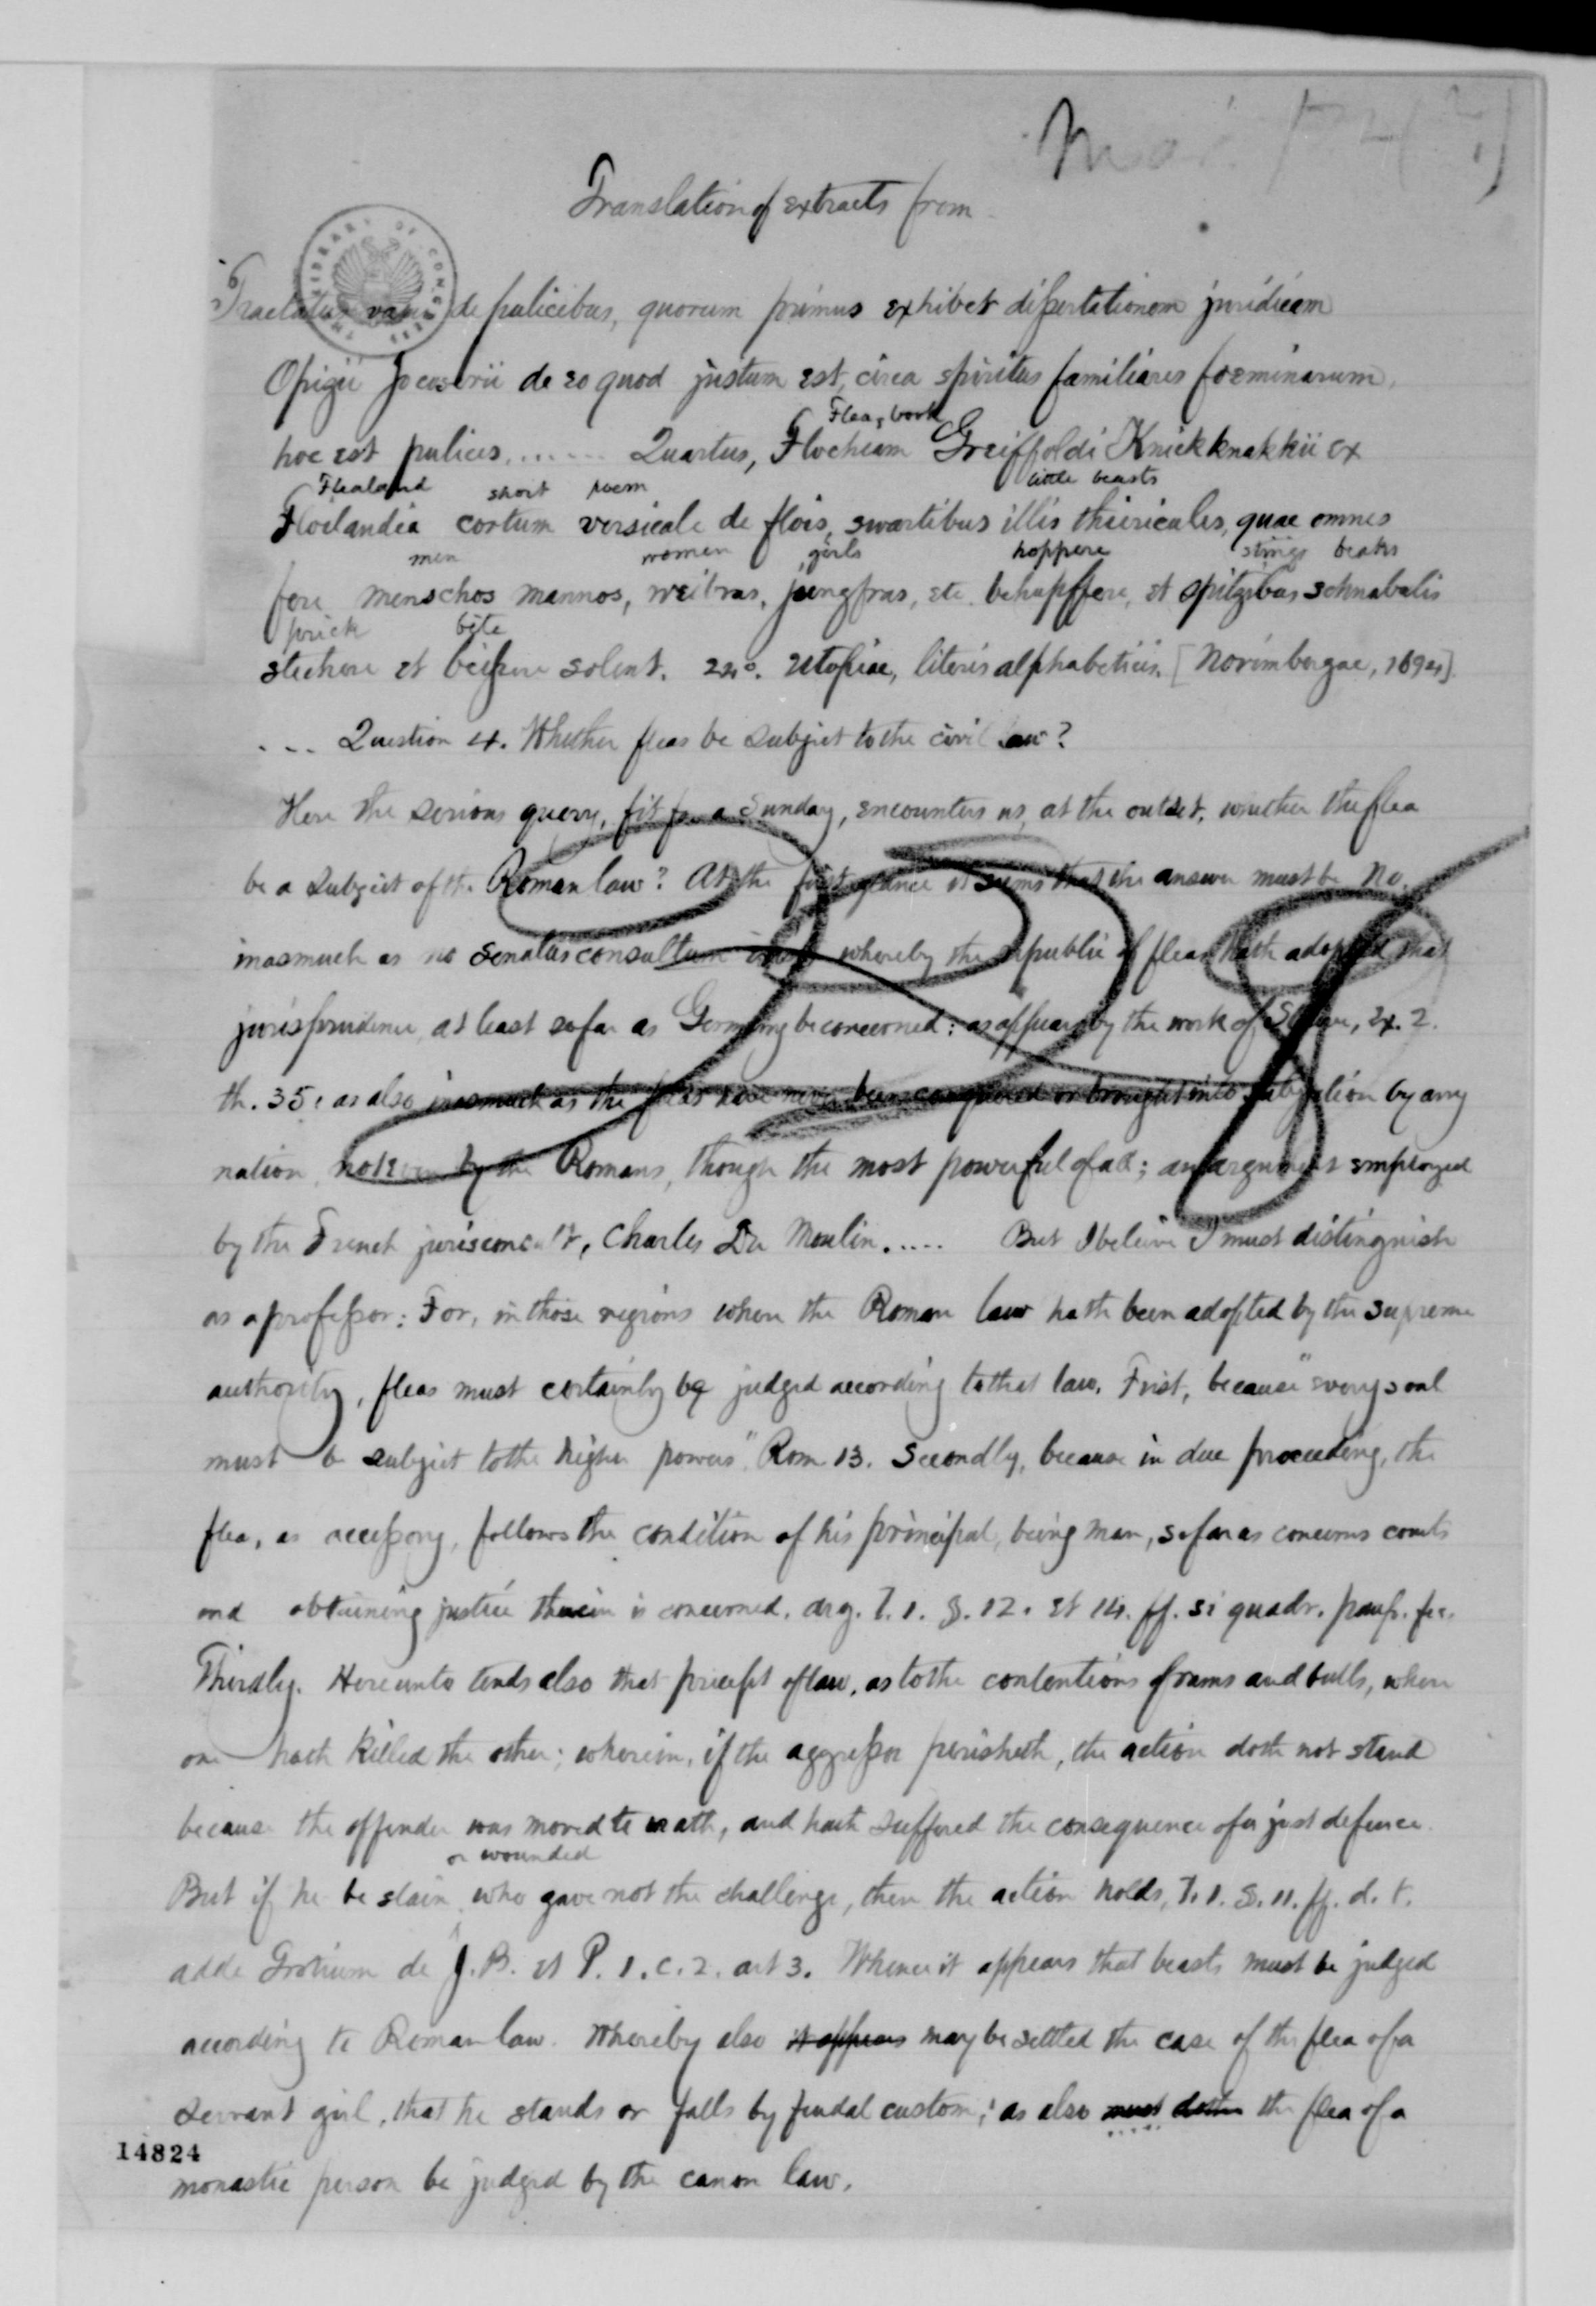 Translation of extracts from
Tractatus varii de pulicibus, quorum primus exhibet dissertationem juridicam
Opizii Jocoserii de eo quod justum est, circa spiritus familiares foeminarum,
hoc est pulices, ...... Quartus,
Flea, book
Flochiam Greiffholdi Knickknakkii ex
Flealand short poem little beasts
Floilandia cortum versicale de flois, swartibus illis thiericules, quae omnes
men women girls hoppere stings beaks
fere menschos mannos, weibras, jungfras, etc. behupffere, et spitzibus schnabulis
prick bite
stechere et beissere solent. Utopiae, literis alphabeticis. [Norimbergae,
... Question 4. Whether fleas be subject to the civil law?
Here the serious query, fit for a Sunday, encounters us, at the outset, whether the flea
be a subject of the Roman law? At the first glance it seems that the answer must be No,
inasmuch as no Senatus consultum exists whereby the republic of fleas hath adopted that
jurisprudence, at least so far as Germany be concerned: as appears by the work of Struve, Ex. 2.
th. 35: as also inasmuch as the fleas have never been conquered or brought into subjection by any
nation, not even by the Romans, though the most powerful of all; an argument employed
by the French jurisconsult, Charles Du Moulin. .... But I believe I must distinguish
as a professor: For, in those regions where the Roman law hath been adopted by the supreme
authority, fleas must certainly be judged according to that law. First, because "every soul
must be subject to the higher powers". Rom. 13. Secondly, because in due proceeding, the
flea, as accessory, follows the condition of his principal, being man, so far as concerns courts
and obtaining justice therein is concerned. arg. l. 1. §. 12. et 14. ff. si quadr. paup. fec.
Thirdly. Hereunto tends also that precept of law, as to the contentions of rams and bulls, when
one hath killed the other; wherein, if the aggressor perisheth, the action doth not stand
because the offender was moved to wrath, and hath suffered the consequence of a just defence.
or wounded
But if he be slain who gave not the challenge, then the action holds, l. 1. §. 11. ff. d. t.
adde Grotium de J. B. et P. 1. c. 2. art 3. Whence it appears that beasts must be judged
according to Roman law. Whereby also it appears may be settled the case of the flea of a
servant girl, that he stands or falls by feudal custom; as also must doth the flea of a
14824
monastic person be judged by the canon law.